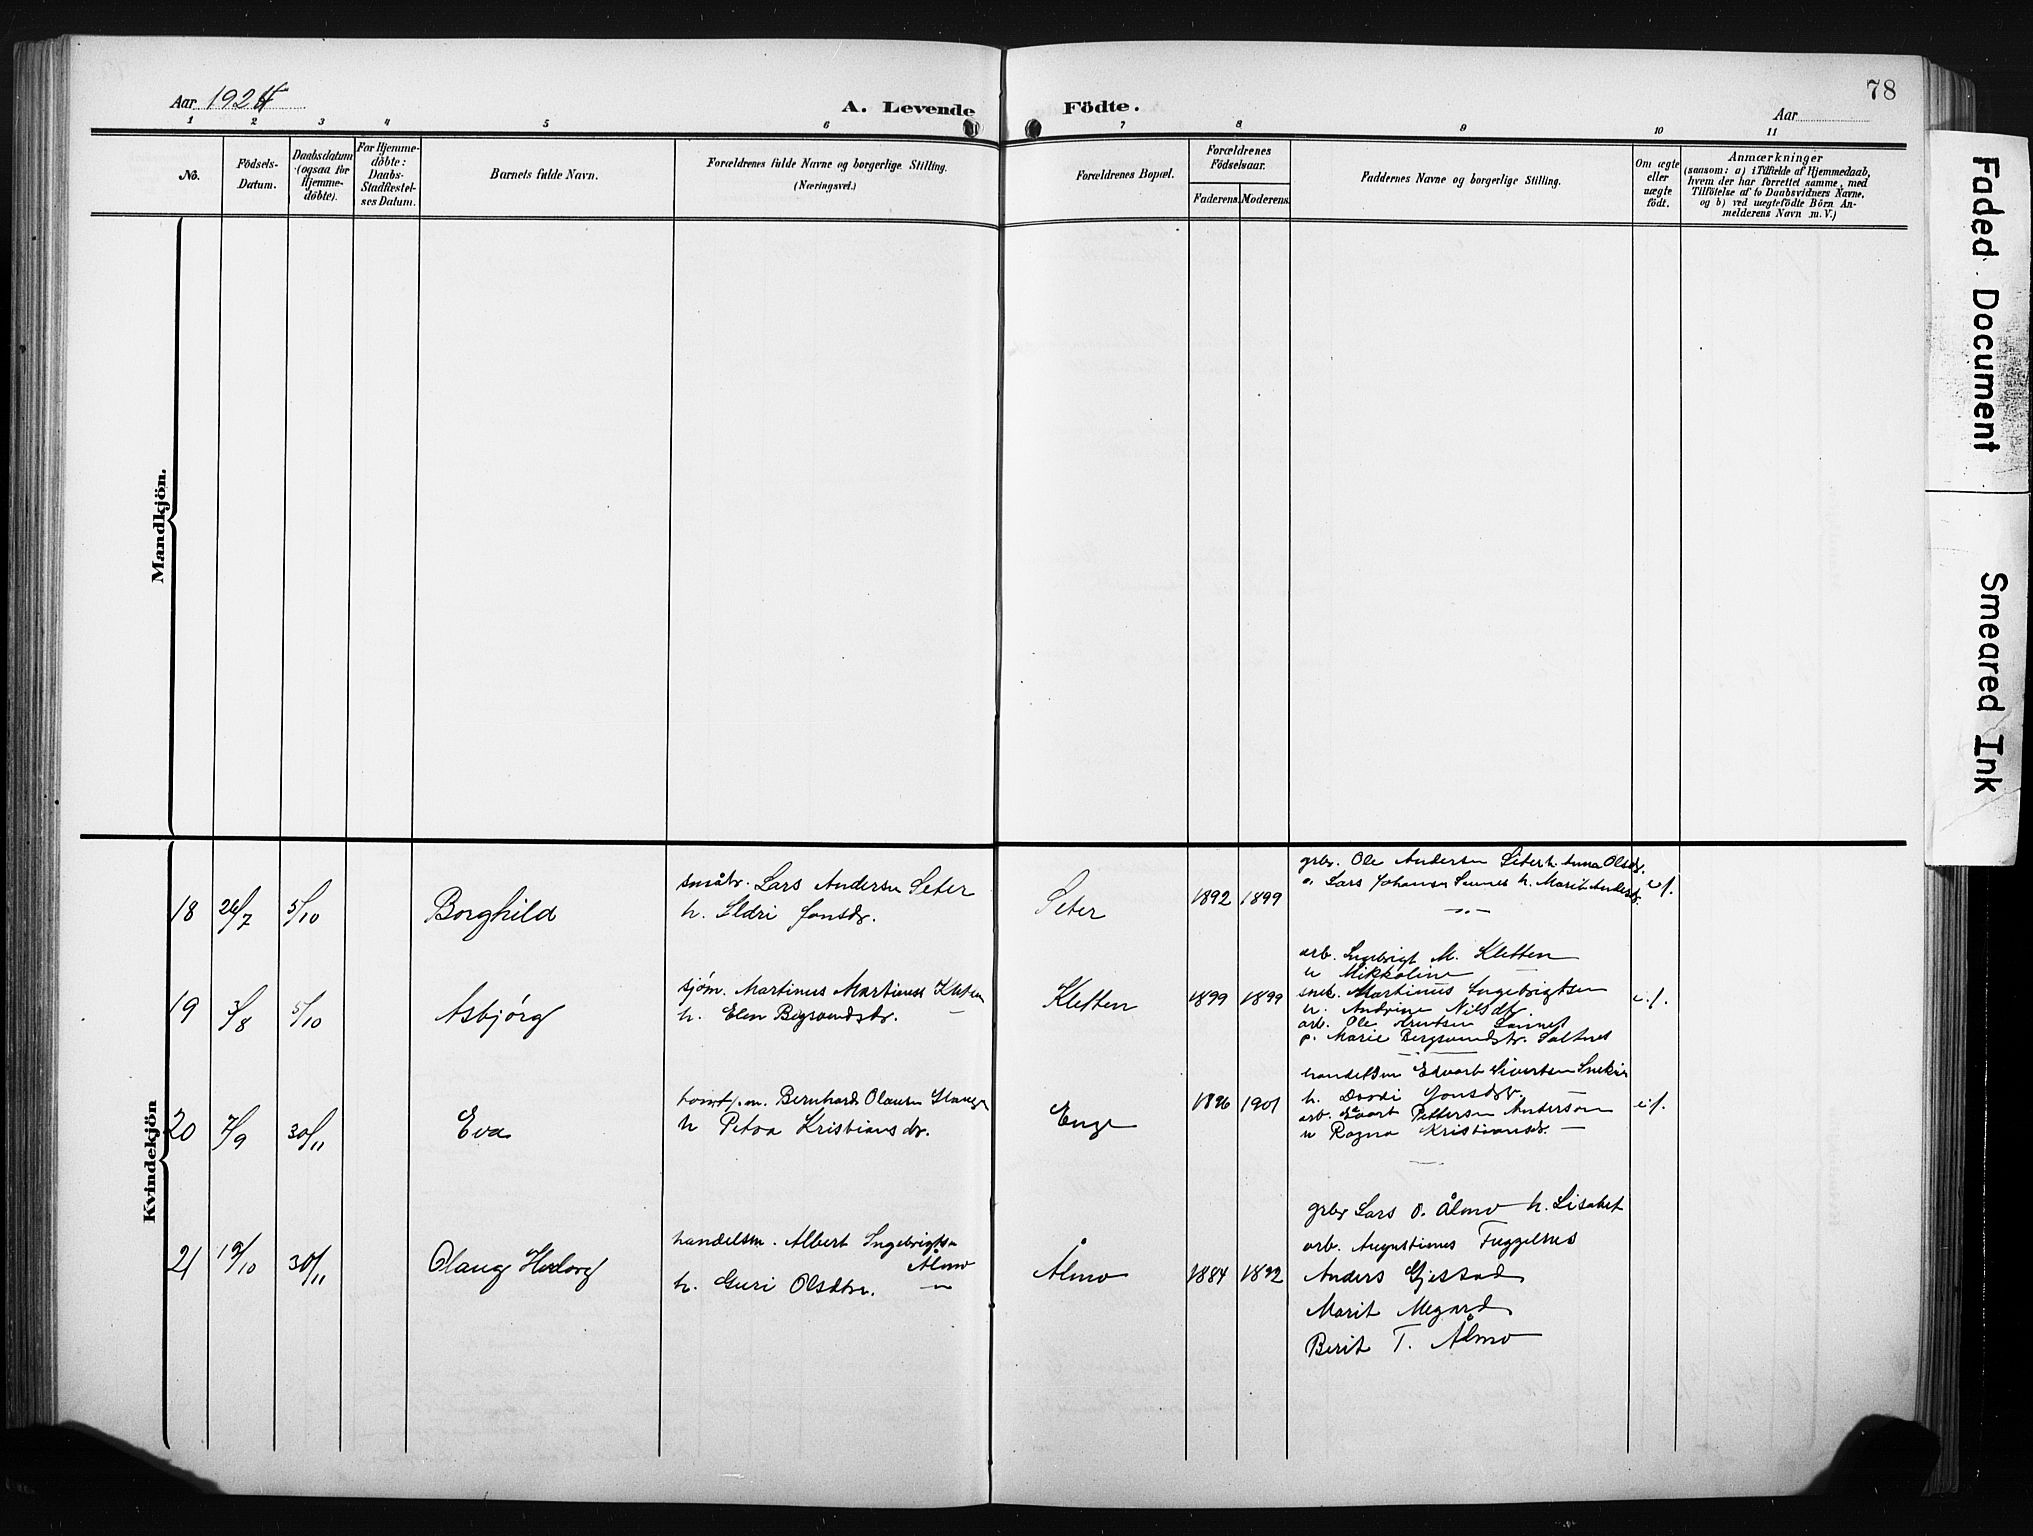 78
Aar 1924
A. Levende Födte.
Aar
1 2 3 4 5 6 7 8 9 10 11
No.
Födsels-
Datum.
Daabsdatum
(ogsaa for
Hjemme-
döbte).
For Hjemme-
döbte:
Daabs-
Stadfæstel-
ses Datum.
Barnets fulde Navn.
Forældrenes fulde Navne og borgerlige Stilling.
(Næringsvei.)
Forældrenes Bopæl.
Forældrenes
Födselsaar.
Faderens. Moderens.
Faddernes Navne og borgerlige Stilling.
Om ægte
eller
uægte
födt.
Anmærkninger
(saasom: a) i Tilfælde af Hjemmedaab,
hvem der har forrettet samme, med
Tilföielse af to Daabsvidners Navne,
og b) ved uægtefödte Börn An-
melderens Navn m. V.)
Mandkjön.
Kvindekjön
18 26/7 5/10 Borghild
småbr. Lars Andersen Seter
h. Ildri Jonsdr.
Seter 1892 1899
grbr. Ole Andersen Seter h. Anna Olsdr.
Lars Johansen h. Marit Andersdr.
19 3/8 5/10 Asbjörg
sjøm. Martinus Martinussen Kletten
h. Elen Bergsvendsdr.
Kletten 1899 1899
arb. Ingebrigt M. Kletten
u Mikkoline —
snek. Martinus Ingebrigtsen
u. Andrine Nilsdtr.
arb. Ole Knutsen
p. Marie Bergsvendsdtr. Saltnes
e.f.
20 7/9 30/11 Eva
Bernhard Olausen
h Petra Kristiansdr.
Enge 1896 1901
handelsm Edvart Sivertsen
h. Jonsdtr. —
arb. Edvart Pettersen Anderson
u Ragna Kristiansdr. —
e.f.
21 19/10 30/11 Olaug
handelsm. Albert Ingebrigtsen
Ålmo
h. Guri Olsdtr.
Ålmo 1884 1892
grbr Lars O. Ålmo h. Lisabet
arb. Augustinus Fuggelsnes
Anders Gjestad
Marit Megard
Berit T. Ålmo
Faded Document
Smeared Ink